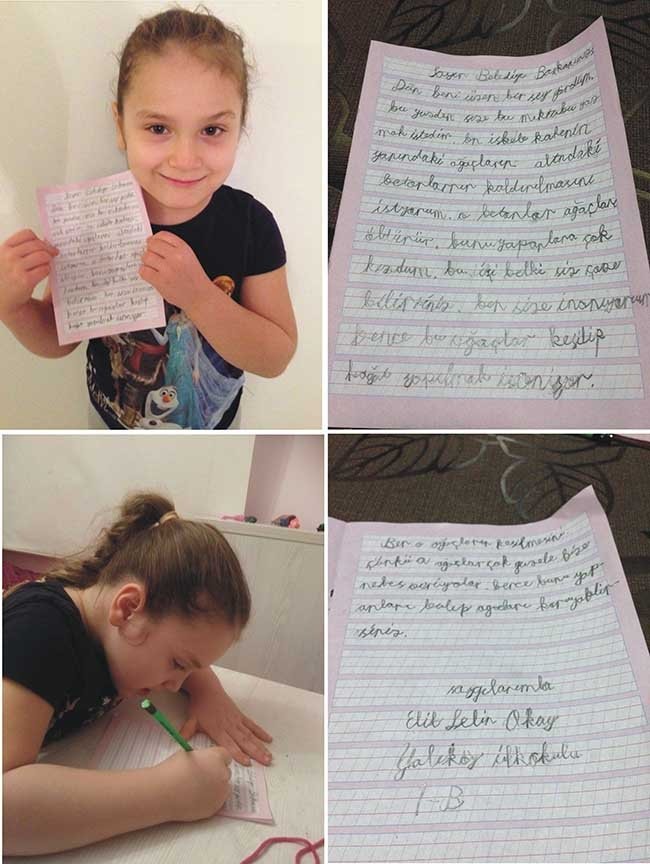 Sayın Belediye Başkanımız
Dün beni üzen ber şey gördüm.
bu yüzden size bu mektubu yaz
mak istedim. bn iskele kahenin
yanındaki ağaçların altındaki
betonların kaldırılmasını
istiyorum. o betonlar ağaçları
öldürür. bunu yapanlara çok
kızdım. bu işi belki siz çöze
bilirsiniz. ben size inanıyorum
bence bu ağaçlar kesilip
kağıt yapılmak isteniyor.
Ben o ağaçların kesilmesini
çünkü o ağaçlar çok güzele bize
nefes veriyolar. bence bunu yap
anlara
saygılarımla
Elif Selin Okay
Yalıköy ilkokulu
1-B